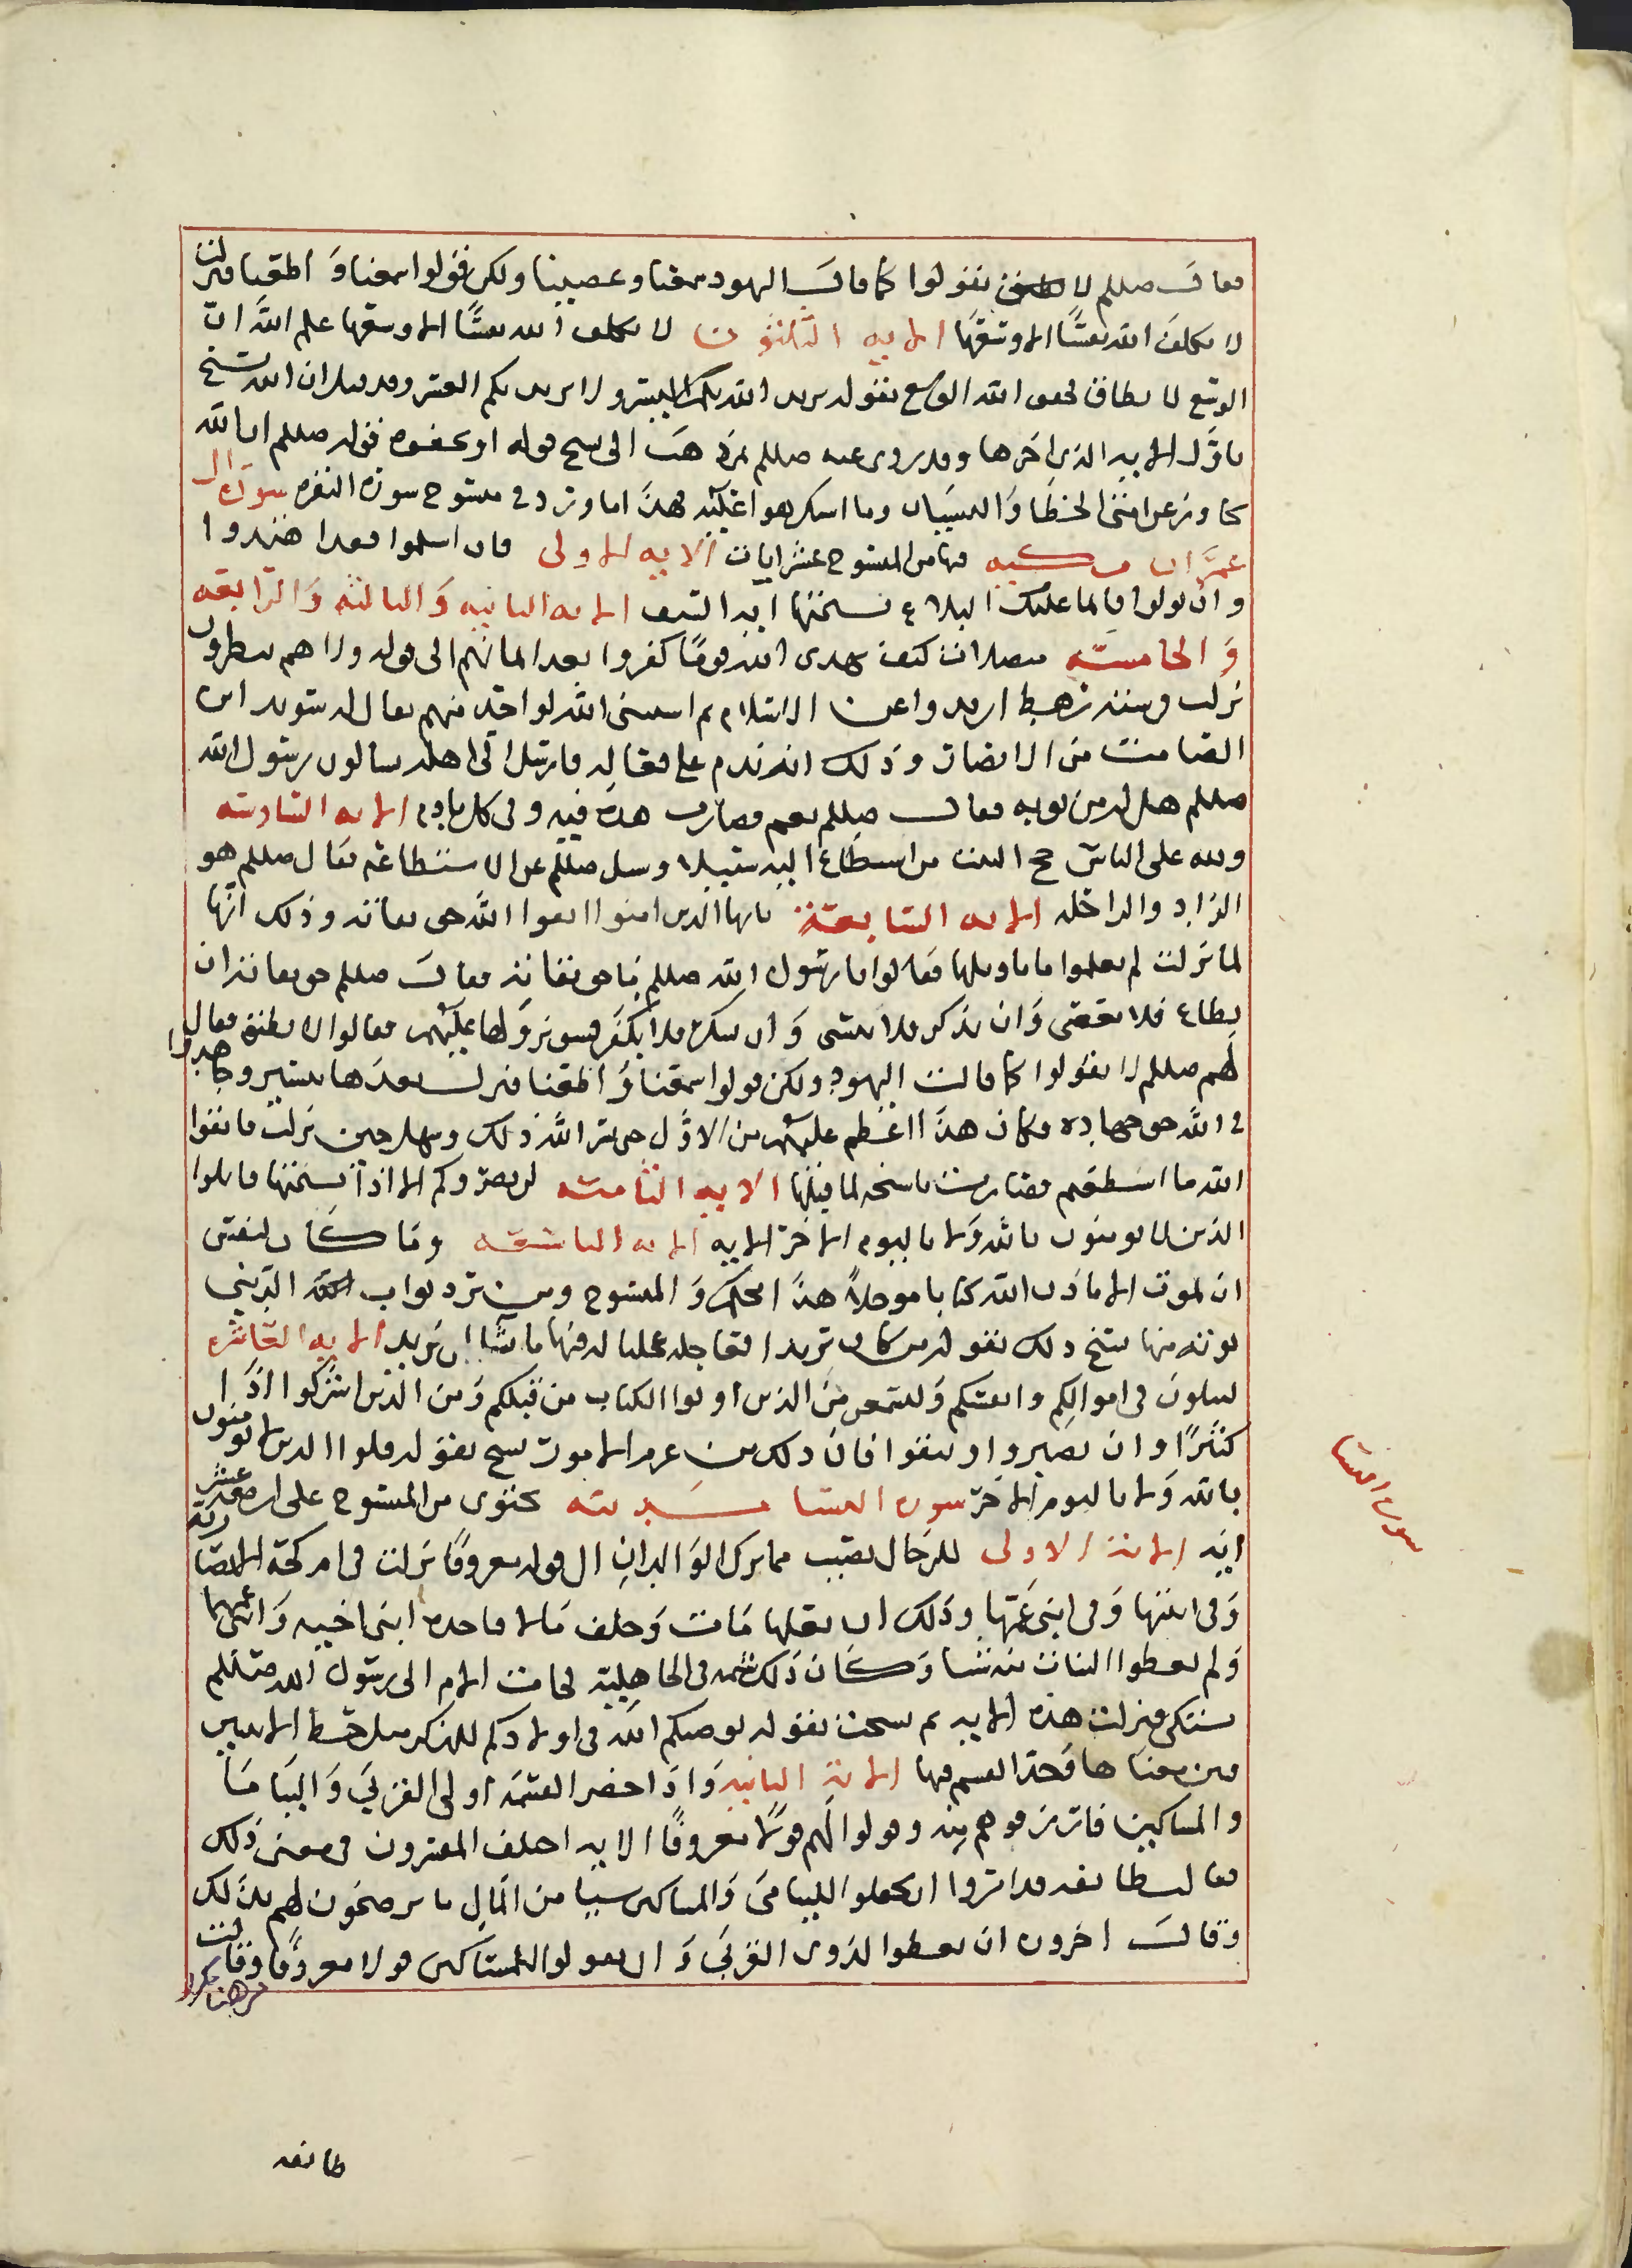 فقال صللم لا تقولوا كما قالت اليهود سمعنا وعصينا ولكن قولوا سمعنا وَ اطعنا فنزلت
لا يكلف الله نفسًا الا وسعَها الايه الثلثون لا يكلف الله نفسًا الا وسعها علم الله ان
الوسع لا يطاق فخفف الله الوسع بقوله يريد الله بكم اليسر ولا يريد بكم العسر وقد قيل ان الله نسخ
باوَّل الايه الذى اخرها وقد روى عنه صللم انه ذهب الى نسخ قوله او تخفوه قوله صللم ان الله
تجاوز عن امتى الخطا وَالنسيان وما استكرهوا عليه فهذا ما ورد فى منسوخ سورة البقره سورة ال
عمرَان مدنيه فيها من المنسوخ عشر ايات الايه الاولى فان اسلموا فقد اهتدوا
وان تولوا فانما عليك البلاع نسختها ايه السيف الايه الثانيه وَالثالثه وَالرابعه
وَالخامسَه متصلات كيف يهدى الله قومًا كفروا بعد ايمانهم الى قوله ولا هم ينظرون
نزلت فى سته رهط ارتدوا عن الاسلام ثم استثنى الله لواحد منهم يقال له سويد ابن
الصامت من الانصار وذلك انه ندم على فعاله فارسل الى اهله يسالون رسول الله
صللم هل له من توبه فقال صللم نعم فصارت هذه فيه وفى كل نادم الايه السادسه
ولله على الناس حج البيت من استطاع اليه سبيلا وسئل صللم عن الاستطاعه فقال صللم هو
الزاد والراحله الايه السابعة يايها الذين امنوا اتقوا الله حق تقاته وذلك انَّها
لما نزلت لم يعلموا ما تاويلها فقالوا يا رسول الله صللم ما حق تقاته فقال صللم حق تقاته ان
يطاع فلا يعصى وَان يذكر فلا ينسى وَ ان يشكر فلا يكفر فسق نزولها عليهم فقالوا لا نطيق فقال
لهم صللم لا تقولوا كما قالت اليهود ولكن قولوا سمعنا وَ اطعنا فنزلت بعدها بيسير وجاهدوا
فى الله حق جهاده فكان هذا اعظم عليهم من الاوَّل حتى يسر الله ذلك وسهل حين نزلت فاتقوا
الله ما استطعتم فصارت ناسخه لما قبلها الايه الثامنه لن يضروكم الا اذًا نسختها قاتلوا
الذين لا يومنون بالله وَلا باليوم الاخر الايه الايه التاسعه وما كان لنفس
ان تموت الا باذن الله كتابا موجلاً هذا محكم وَ المنسوخ ومن يرد ثواب الدنيا
نوته منها نسخ ذلك بقوله من كان يريد العاجله عجلنا له فيها ما نشا لمن نريد الايه العاشره
لتبلون فى اموالكم وانفسكم وَلتسمعن منَ الذين اوتوا الكتاب من قبلكم وَمن الذين اشركوا اذًا
كثيرًا وان تصبروا وتتقوا فان ذلك من عزم الامور نسخ بقوله قاتلوا الذين لا يومنون
بالله وَلا باليوم الاخر سورة النسا مدنيه تحتوى من المنسوخ على اربعة عشر
ايَه الاية الاولى للرجال نصيب مما ترك الوَالدان الى قوله معروفًا نزلت فى ام كحة الانصارية
وَفى ابنتها وَفى ابنى عمّها وذلك ان بعلها مَات وَخلف مَالا فاخذه ابنى اخيه وَابنى عمهما
وَلم يعطوا البنات منه شيا وَكان ذلك سنة فى الجاهلية فجات الام الى رسول الله صللم
تشتكى فنزلت هذه الايه ثم نسخت بقوله يوصيكم الله فى اولادكم للذكر مثل حظ الانثيين
فبين معناها وَحدّ القسم فيها الاية الثانيه وَاذا حضر القسمَة اولى القربى وَاليتامَا
والمساكين فارزقوهم منه وقولوا لهم قولًا معروفًا الايه اختلف المفسرون فى معنى ذلك
فقالت طائفه قد امروا ان يجعلوا لليتامَى وَالمساكين شيا من المَال ما يرضخون لهم بذلك
وقالَ اخرون ان يعطوا لذوى القربى وَ ان يقولوا للمساكين قولا معروفًا وقالت
من هنا مكرر
طائفه
سورة النسا